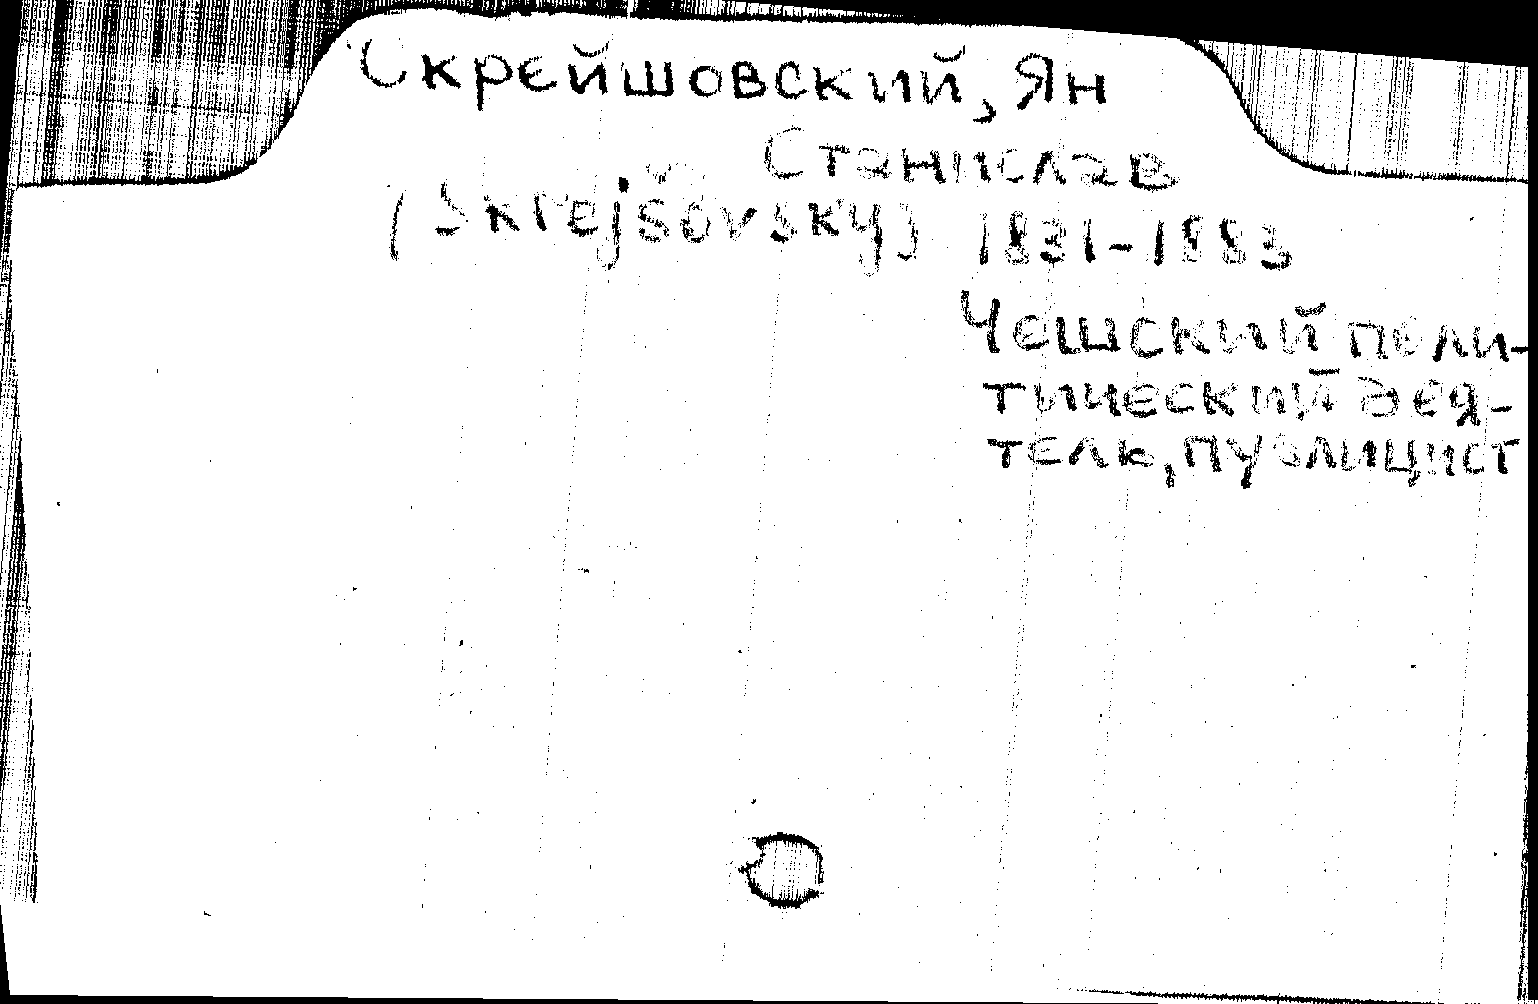 Скрейшовский, Ян
Станислав
(Skrejšovský) 1831-1883
Чешский поли-
тический дея-
тель, публицист